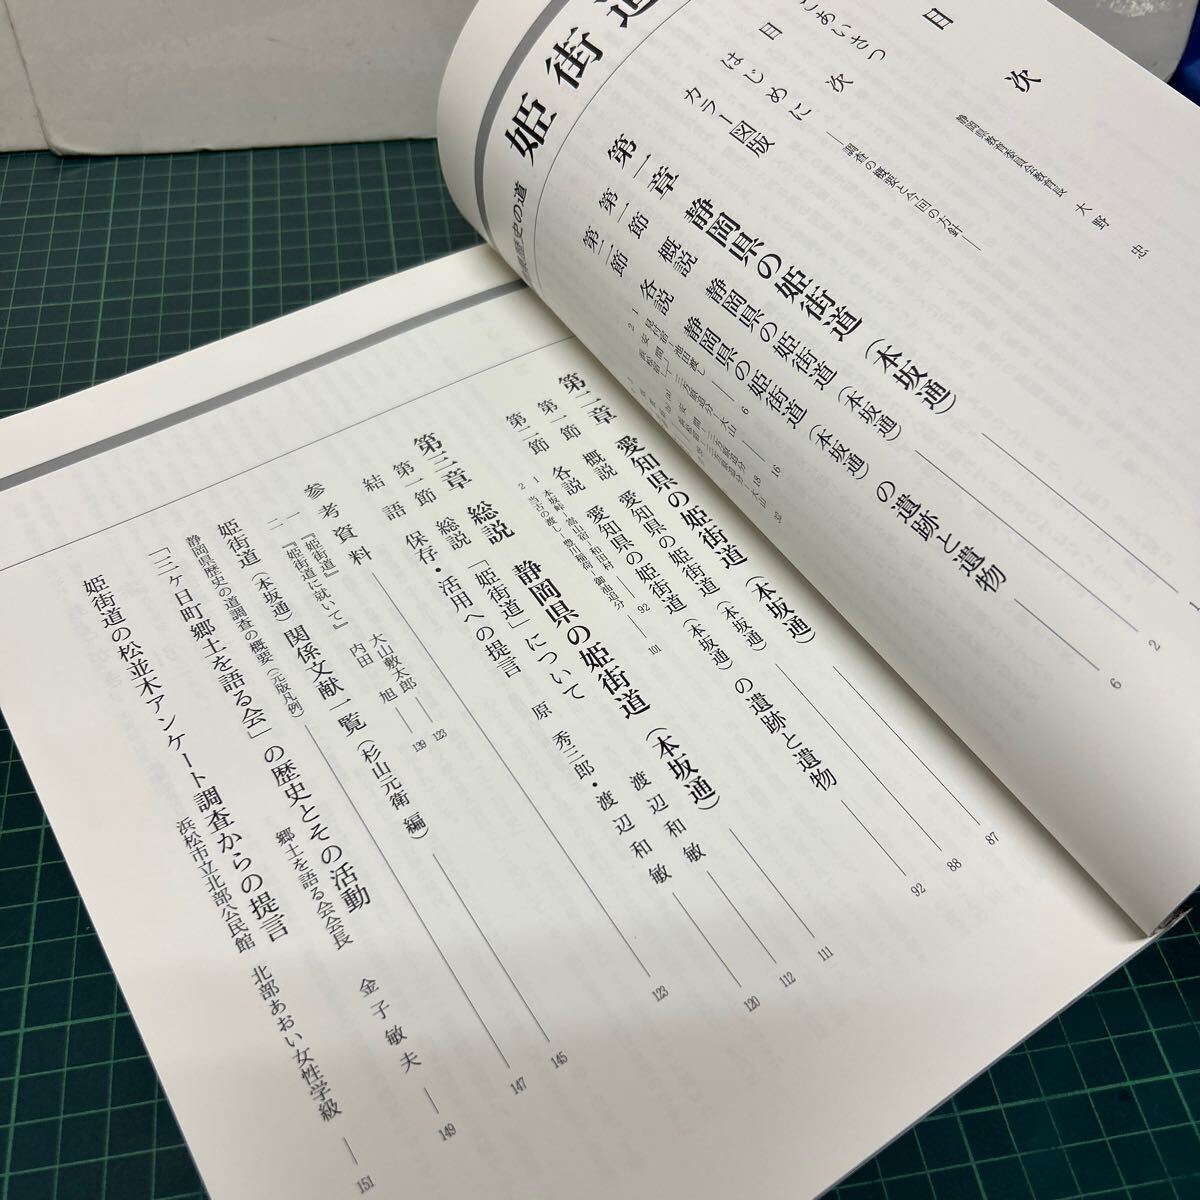 姫街道
歴史の道
目次
ごあいさつ
静岡県教育委員会教育長 大野 忠
目次
はじめに
―調査の概要と今回の方針―
カラー図版
第一章 静岡県の姫街道（本坂通）
第一節 概説 静岡県の姫街道（本坂通） 2
第二節 各説 静岡県の姫街道（本坂通）の遺跡と遺物 6
1 見付宿―池田渡し 6
第二章 愛知県の姫街道（本坂通） 87
第一節 概説 愛知県の姫街道（本坂通） 88
第二節 各説 愛知県の姫街道（本坂通）の遺跡と遺物 92
1 本坂峠―嵩山宿―和田村 92
2 当古の渡し―豊川稲荷―御油追分 101
第三章 総説 静岡県の姫街道（本坂通） 111
第一節 総説「姫街道」について 渡辺和敏 112
保存・活用への提言 原 秀三郎・渡辺和敏 120
結語
参考資料 123
一『姫街道』 大山敷太郎 123
二『姫街道に就いて』 内田 旭 139
姫街道（本坂通）関係文献一覧（杉山元衛 編） 145
静岡県歴史の道調査の概要（元版凡例） 147
「三ヶ日町郷土を語る会」の歴史とその活動 郷土を語る会会長 金子敏夫 149
姫街道の松並木アンケート調査からの提言 浜松市立北部公民館 北部あおい女性学級 151